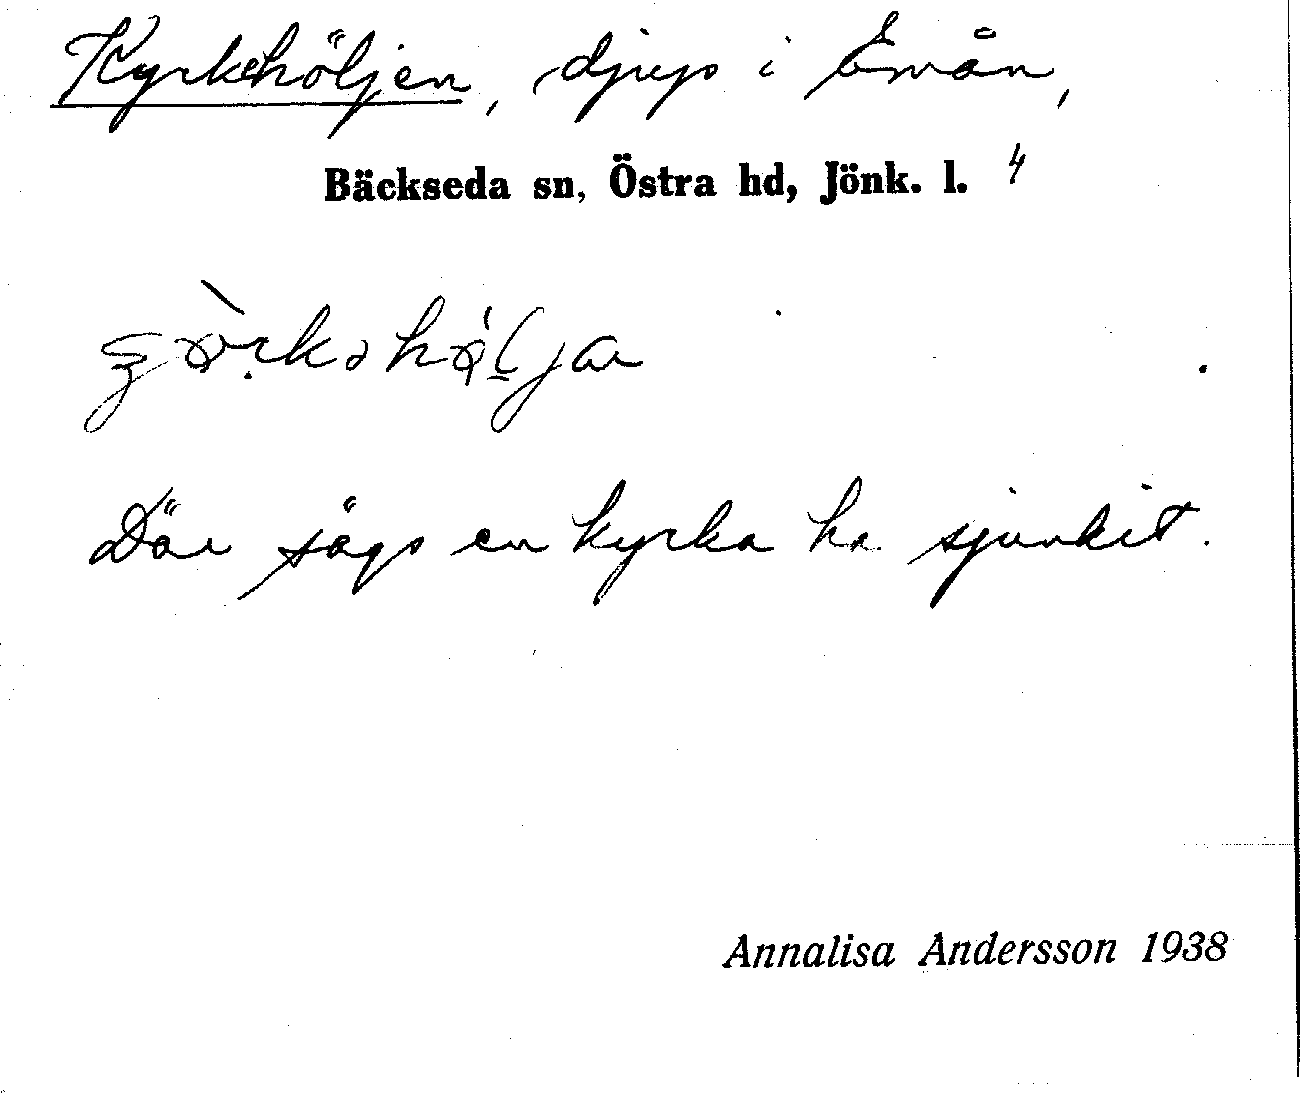 Kyrkehöljen, djup i Emån,
Bäckseda sn, Östra hd, Jönk. l. 4
Där sägs en kyrka ha sjunkit.
Annalisa Andersson 1938